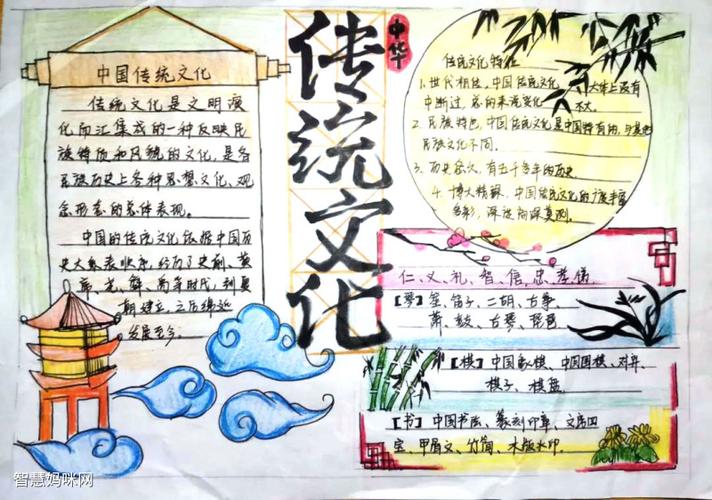 中国传统文化
传统文化是文明演
化而汇集成的一种反映民
族特质和风貌的文化，是各
民族历史上各种思想文化、观
念形态的总体表现。
中国的传统文化依据中国历
史大系表顺序，经历了史前、黄
帝、尧、舜、禹等时代，到夏
朝建立，之后绵延
发展至今
中华
传统文化
传统文化特征
1.世代相传，中国传统文化
中断过，总的来说变化 不大。
2.民族特色，中国传统文化是中国特有的，与其他
民族文化不同。
3.历史悠久，有五千多年的历史
4.博大精深，中国传统文化的广度丰富
多彩，深远
仁、义、礼、智、信、忠、孝、悌
【琴】笙、笛子、二胡、古筝
萧、鼓、古琴、琵琶
【棋】中国象棋、中国围棋、对弈、
棋子、棋盘
【书】中国书法、篆刻印章、文房四
宝、甲骨文、竹简、木版水印
智慧妈咪网